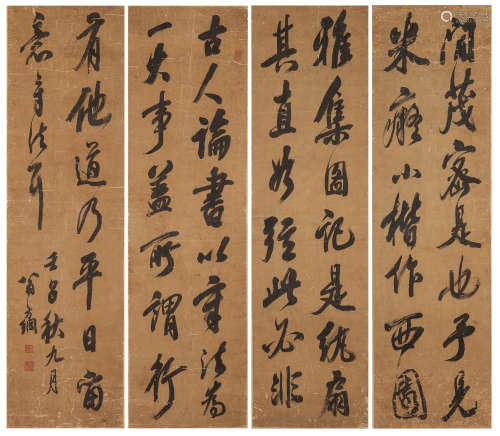 間茂密是也予見
米癡小楷作西園
雅集圖記是紈扇
其直如弦此必非
古人論書以章法為
一大事蓋所謂行
有他道乃平日留
意章法耳
秋九月
翁方綱